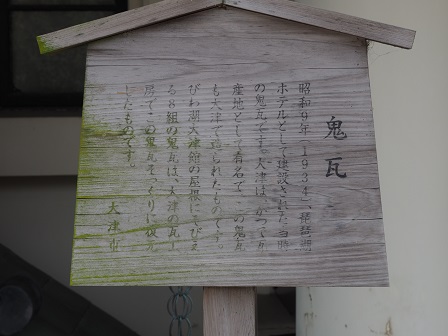 鬼瓦
昭和9年（1934）、琵琶湖
ホテルとして建設された当時
の鬼瓦です。大津は、かつて瓦
産地として有名で、この鬼瓦
も大津で造られたものです。
びわ湖大津館の屋根にそびえ
る8組の鬼瓦は、大津の瓦工
房でこの鬼瓦そっくりに復元
したものです。
大津市